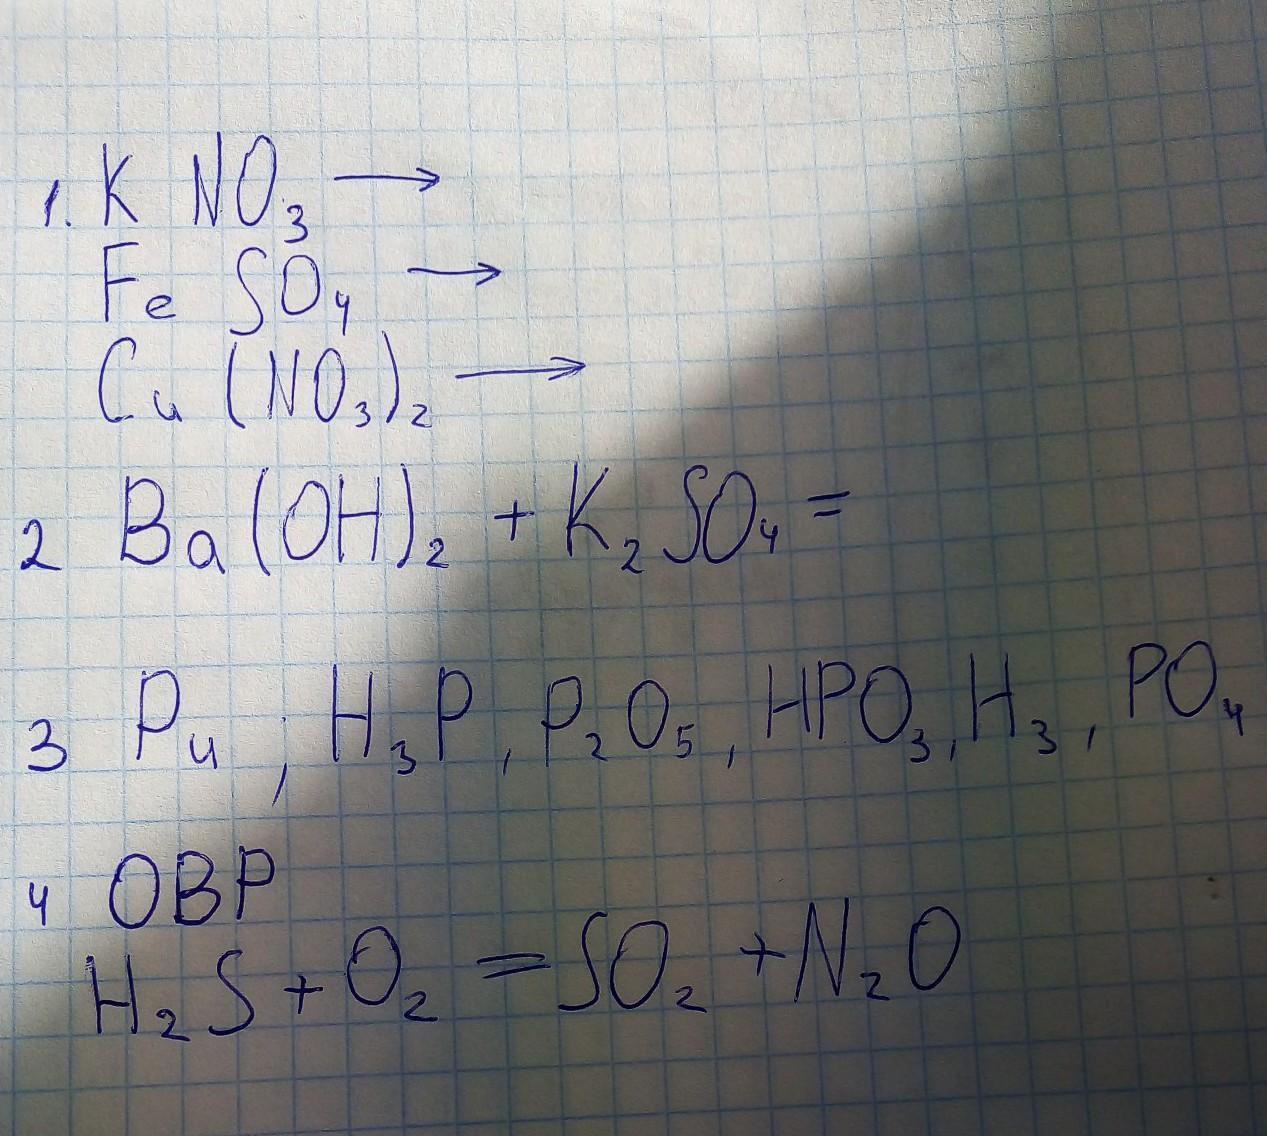 1. K NO₃ →
Fe SO₄ →
Cu (NO₃)₂ →
2 Ba(OH)₂ + K₂SO₄ =
3 Pu ; H₃P, P₂O₅, HPO₃, H₃, PO₄
4 ОВР
H₂S + O₂ = SO₂ + N₂O